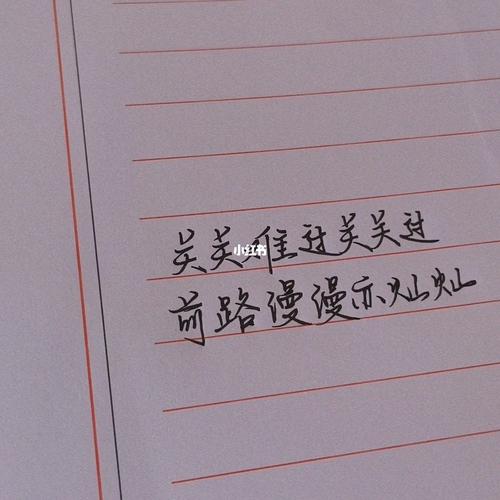 关关难过关关过
小红书
前路漫漫亦灿灿